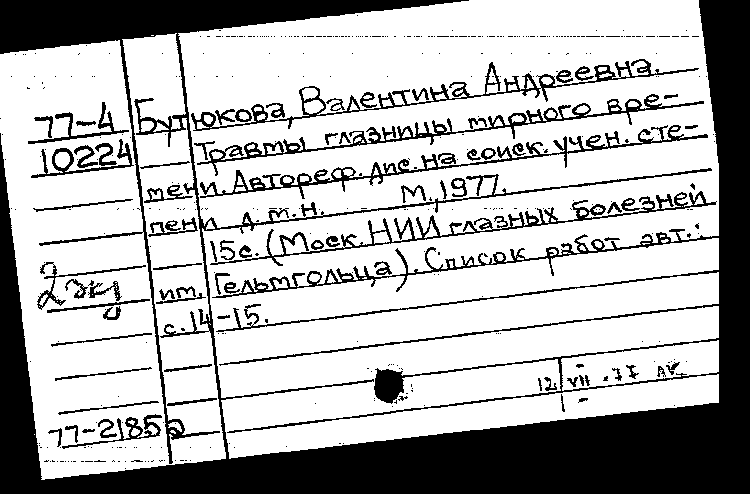 77-4 Бутюкова, Валентина Андреевна.
10224 Травмы глазницы мирного вре-
мени. Автореф. дис. на соиск. учен. сте-
пени д.м.н. М., 1977.
15с. (Моск. НИИ глазных болезней
2 экз им. Гельмгольца). Список работ авт.:
с. 14-15.
12 VII -77
77-2185